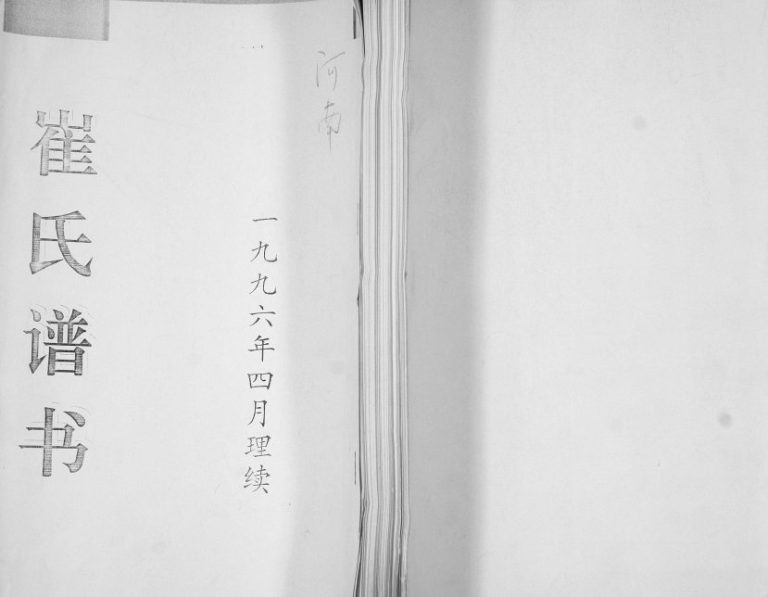 崔氏谱书
一九九六年四月理续
河南